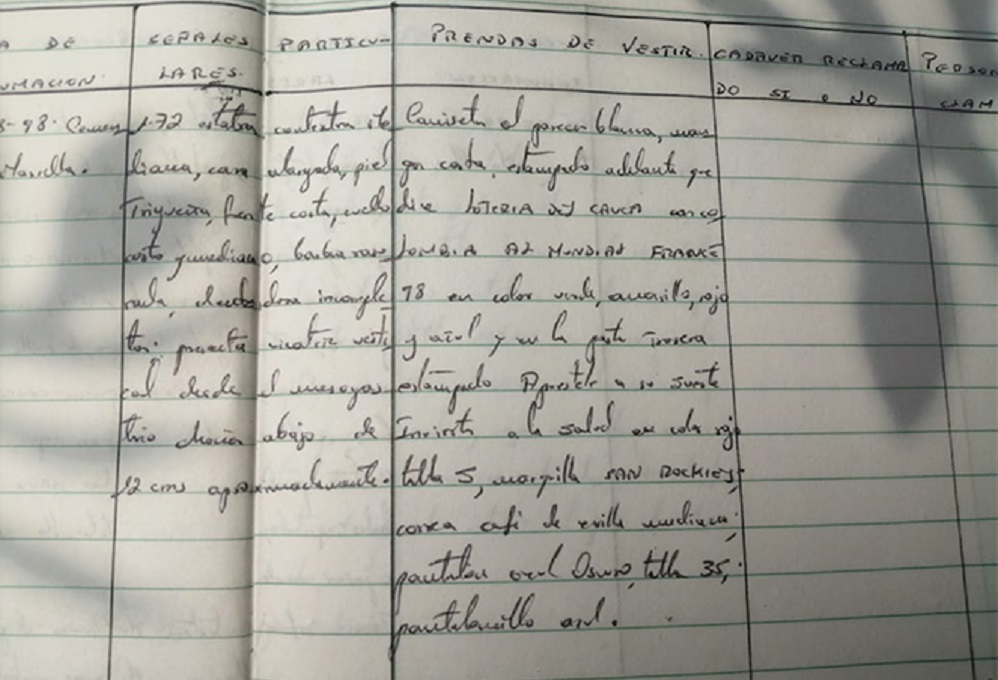 A DE
UMACION.
SEÑALES PARTICU-
LARES.
PRENDAS DE VESTIR.
CADAVER RECLAMA
DO SI o NO
PERSON
CLAM
5-98. Cemen
Marsella.
1-72 estatura contextura me
diana, cara alargada, piel
Trigueña, frente corta, cuello
corto y mediano, barba rasu
rada, dentadura incomple
ta. presenta cicatriz verti
cal desde el mesogas
trio hacia abajo de
12 cms aproximadamente.
Camiseta al parecer blanca, man
ga corta, estampado adelante que
dice LOTERIA DEL CAUCA con CO
LOMBIA AL MUNDIAL FRANCE
98 en color verde, amarillo, rojo
y azul y en la parte Trasera
estampado Apuestele a su suerte
Invierta a la salud en color rojo
talla S, marquilla SAN ROCKIES,
correa café de evilla mediana,
pantalon azul Oscuro, talla 35,
pantaloncillo azul.